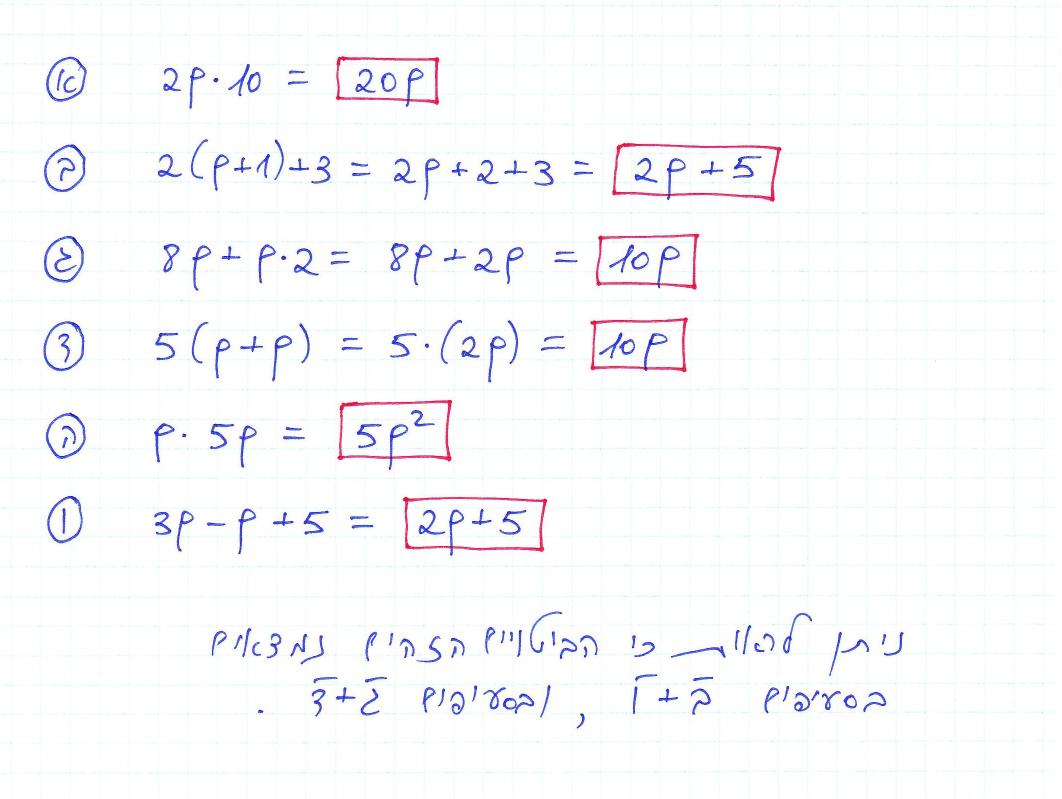 א 2p·10 = 20p
ב 2(p+1)+3 = 2p+2+3 = 2p+5
ג 8p+p·2 = 8p+2p = 10p
ד 5(p+p) = 5·(2p) = 10p
ה p·5p = 5p²
ו 3p-p+5 = 2p+5
ניתן לראות כי הביטויים הזהים נמצאים
בסעיפים ב+ו, ובסעיפים ג+ד.